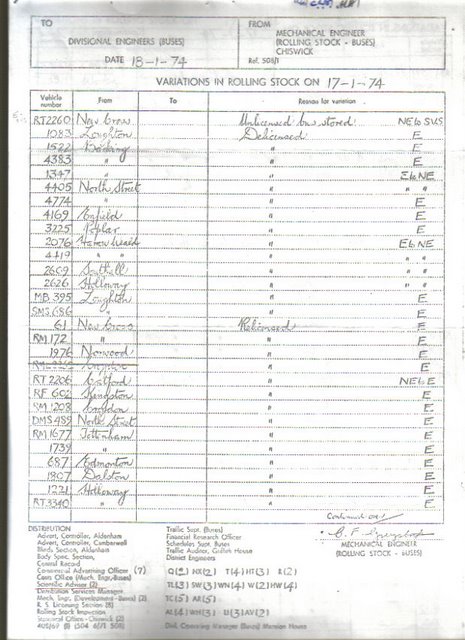 TO
DIVISIONAL ENGINEERS (BUSES)
DATE 18-1-74
FROM
MECHANICAL ENGINEER
(ROLLING STOCK - BUSES)
CHISWICK
Ref. 508/1
VARIATIONS IN ROLLING STOCK ON 17-1-74
Vehicle number From To Reason for variation
RT2260 New Cross Unlicensed bus stored. NE to SUS
1083 Loughton Delicensed E
1522 Barking " E
4383 " " E
1347 " " E to NE
4405 North Street " " "
4774 " " E
4169 Enfield " E
3225 Poplar " E
2076 Harrow Weald " E to NE
4419 " " " " "
2609 Southall " " "
2626 Holloway " " "
MB 395 Loughton " E
SMS 686 " " E
61 New Cross Relicensed E
RM 172 " " E
1976 Norwood " E
RT 2206 Catford " NE to E
RF 602 Kingston " E
RM 1208 Croydon " E
DMS 489 North Street " E
RM 1677 Tottenham " E
1739 " " E
687 Edmonton " E
1807 Dalston " E
1221 Holloway " E
RT 3340 " " E
Continued over
MECHANICAL ENGINEER
(ROLLING STOCK - BUSES)
DISTRIBUTION
Advert. Controller, Aldenham
Advert. Controller, Camberwell
Blinds Section, Aldenham
Body Spce. Section,
Central Record
Commercial Advertising Officer (7)
Cars Office (Mech. Engr. Buses)
Scientific Adviser (2)
Distribution Services Manager
Mech. Engr. (Development - Buses) (2)
R. S. Licensing Section (8)
Rolling Stock Inspection
Statistical Office - Chiswick (2)
AUS/69 (B) (504 6/1 508)
Traffic Supt. (Buses)
Financial Research Officer
Schedules Supt. Buses
Traffic Auditor, Griffith House
Divisional Engineers (Buses)
Q(2) NX(2) T(4) HT(3) R(2)
TL(3) SW(3) WN(4) W(2) HW(4)
TC(5) AR(5)
AL(4) WH(3) U(3) AV(2)
Divl. Operating Manager (Buses) Mansion House